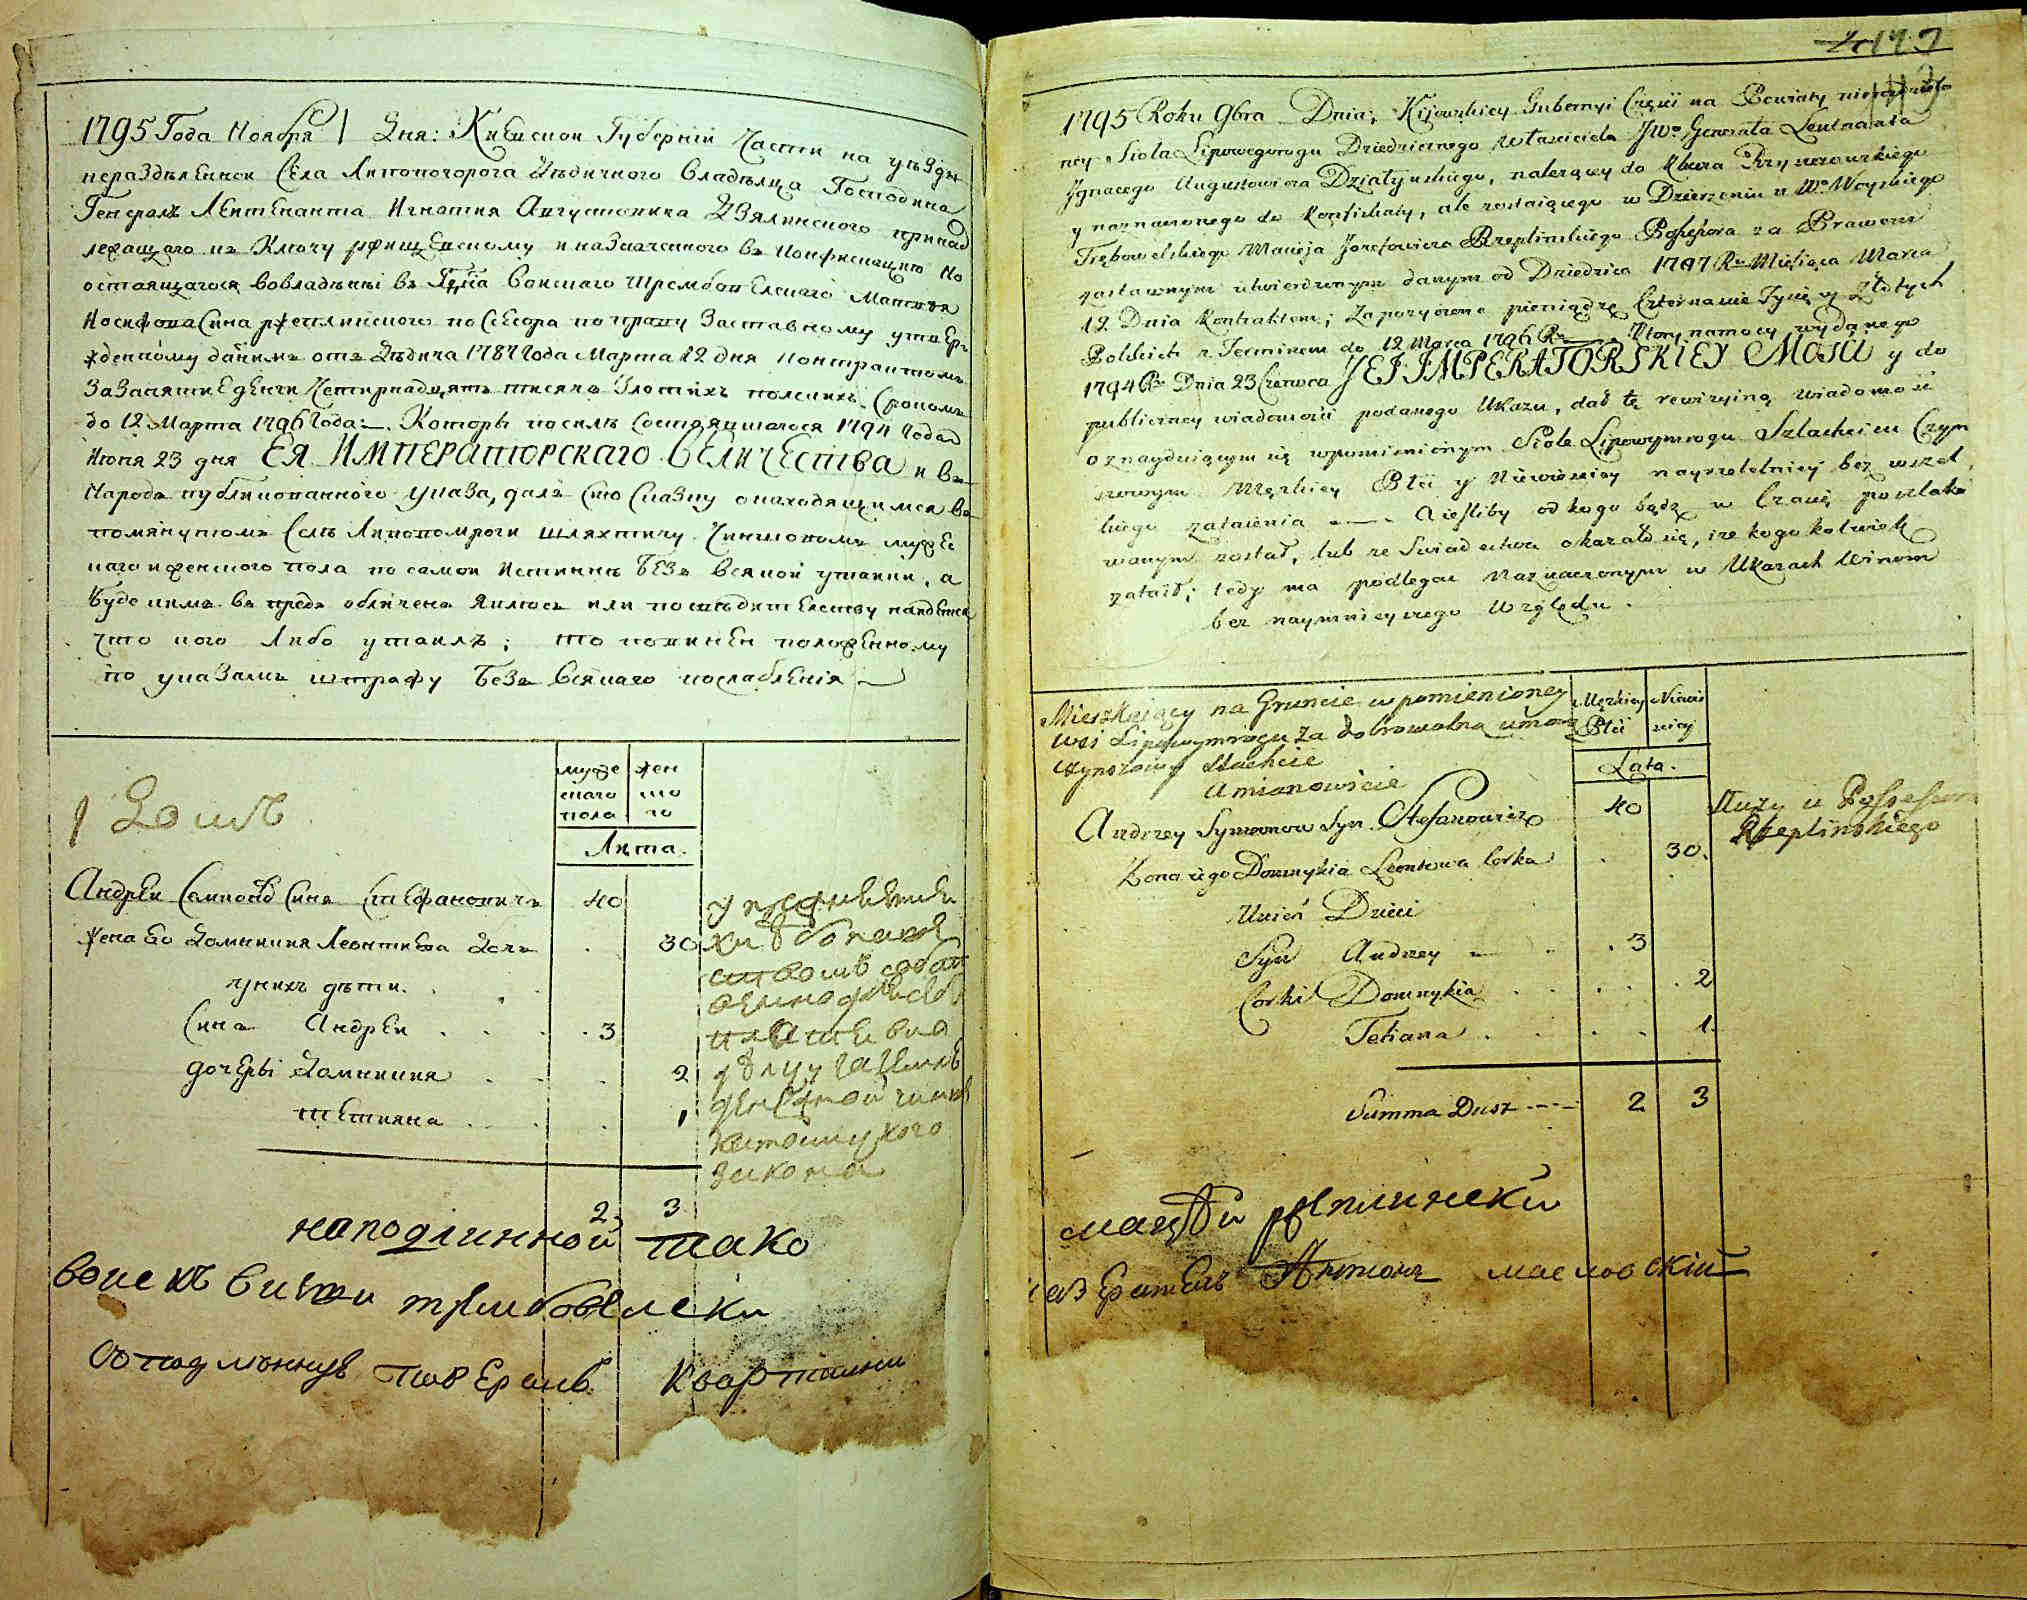 1795 Года Ноября 1 Дня: Киевской Губернїи Части на уезды
нераздѣленной Села Липовогорога Дѣдичного Владѣлца Господина
Генералъ Лейтенанта Игнатия Августовича Дзялинского принад
лежащаго къ Ключу ржищевскому и назначенного въ Конфискацию но
остаящагося вовладѣнїи въ Пана Войскаго Трембовелскаго Мацея
Иосифова Сина ржеплинского посесора по праву Заставному утвер
жденному даннимъ отъ Дѣдича 1787 Года Марта 12 дня контрактомъ
За Взятие денги Четирнадцять тисячъ Злотихъ полскихъ Срокомъ
до 12 Марта 1796 Года. Которы по силѣ Состоявшагося 1794 Года
Июня 23 дня ЕЯ ИМПЕРАТОРСКАГО ВЕЛИЧЕСТВА и въ
Народъ публикованного указа, далъ Сию Сказку о находящимся въ
помянутомъ Селѣ Липовомроги шляхтичу Чиншовомъ муже
каго и женского пола по самой Истиннѣ БЕЗъ всякой утайки, а
буде кимъ въ предъ обличенъ явлюсъ или по свѣдителству найдется
что кого Либо утаилъ; то повинен положенному
по указамъ штрафу Безъ всякаго послабленїя
муже | жен
скаго | ско
пола | го
1 Домъ
Лѣта
Андрей Семионовъ Синъ Стефановичъ 40
жена Его Доминикия Леонтиева Дочъ . 30
у нихъ дѣти
Синъ Андрей . . . 3
дочеры Доминикия . . . 2
тетияна . . . 1
закона
2 3
наподлинной тако
воискъ трембовелски
повераль Квартални
4147
1795 Roku 9bra Dnia, Kijowskiey Gubernyi Częsci na Powiaty nierozdzielo
ney Siola Lipowegorogu Dziedzicznego własciciela JWo Generała Leutnanta
Ignacego Augustowicza Działynskiego, należący do Klucza Rzyszczowskiego
y naznaczonego do Konfiskaty, ale zostaiącego w Dzierżeniu u Wo Woyskiego
Trębowelskiego Macieja Jozefowicza Rzeplinskiego Possessora za Prawem
zastawnym utwierdzonym danym od Dziedzica 1787 Ru Miesiąca Marca
12 Dnia Kontraktem; za pozyczone pieniądze Czternascie Tysięcy Złotych
Polskich z Terminem do 12 Marca 1796 Ru. Ktory namocy wydanego
1794 Ru Dnia 23 Czerwca JEJ IMPERATORSKIEY Mosci y do
publiczney wiadomosci podanego Ukazu, dał tę rewizyiną wiadomosc
o znayduiącym się wzpomienionym Siole Lipowymrogu Szlachcicu Czyn
szowym Męzkiey Płci y Niewiesciey nayrzetelniey bez wszel
kiego zataienia Aiesliby od kogo bądz w Czasie poszlako
wanym został, lub ze Swiadectwa okazało się, iże kogokolwiek
zataił; tedy ma podlegac Naznaczonym w Ukazach Winom
bez naymnieyszego Względu.
Mieszkaiący na Gruncie wpomienioney | Męzkiey | Niewies
wsi Lipowymrogu za dobrowolną umową | Płci | ciey
czynszowy Slachcic
Amianowicie
Lata.
Andrzey Symonow Syn Stefanowicz 40 Służy u Possessora
Rzeplinskiego
Zona iego Domnykia Leontowa Corka . 30.
Unich Dzieci
Syn Andrzey . 3
Corki Domnykia . . . 2
Tetiana . . . 1.
Summa Dusz 2 3
мацѣй рѣплински
Антонъ масловскїй